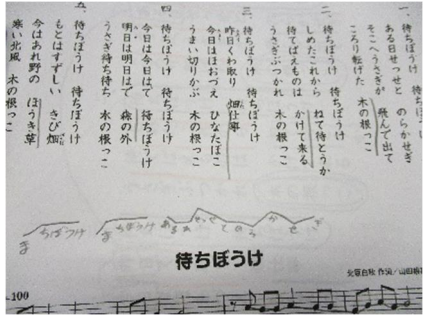 一、待ちぼうけ　待ちぼうけ
ある日せっせと　のらかせぎ
そこへうさぎが　飛んで出て
ころり転げた　木の根っこ
二、待ちぼうけ　待ちぼうけ
しめたこれから　ねて待とうか
待てばえものは　かけて来る
うさぎぶつかれ　木の根っこ
三、待ちぼうけ　待ちぼうけ
昨日くわ取り　畑仕事
今日はほおづえ　ひなたぼこ
うまい切りかぶ　木の根っこ
四、待ちぼうけ　待ちぼうけ
今日は今日はで　待ちぼうけ
明日は明日はで　森の外
うさぎ待ち待ち　木の根っこ
五、待ちぼうけ　待ちぼうけ
もとはすずしい　きび畑
今はあれ野の　ほうき草
寒い北風　木の根っこ
まちぼうけ　まちぼうけ　あるひせっせとのらかせぎ
待ちぼうけ
北原白秋 作詞／山田耕筰
-100